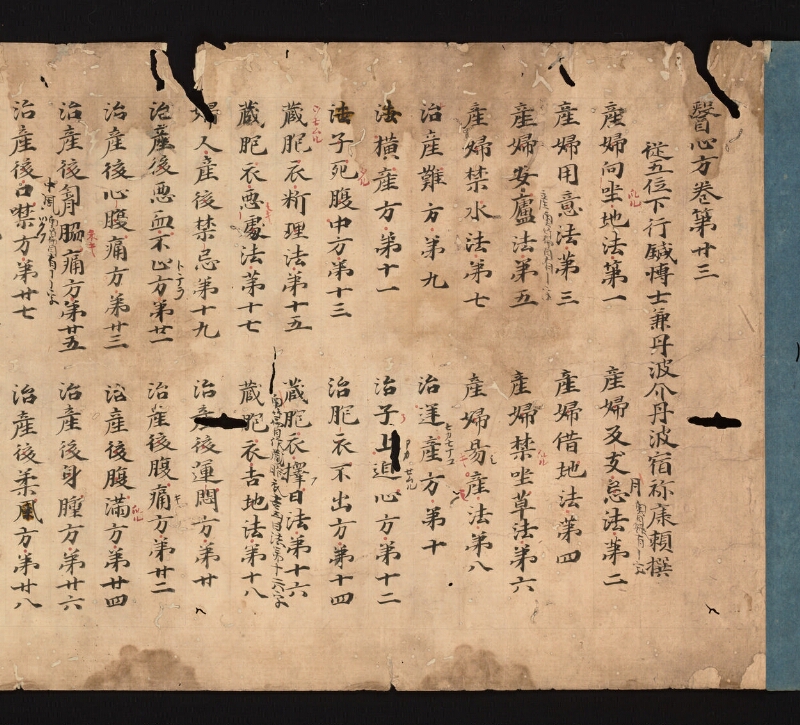 醫心方卷第廿三
從五位下行鍼博士兼丹波介丹波宿祢康頼撰
産婦向坐地法第一 産婦反支忌法第二
産婦用意法第三 産婦借地法第四
産婦安廬法第五 産婦禁坐草法第六
産婦禁水法第七 産婦易産法第八
治産難方第九 治逆産方第十
治横産方第十一 治子上迫心方第十二
治子死腹中方第十三 治胞衣不出方第十四
蔵胞衣断理法第十五 蔵胞衣擇日法第十六
蔵胞衣悪處法第十七 蔵胞衣吉地法第十八
婦人産後禁忌第十九 治産後運悶方第廿
治産後悪血不止方第廿一 治産後腹痛方第廿二
治産後心腹痛方第廿三 治産後腹満方第廿四
治産後胸脇痛方第廿五 治産後身腫方第廿六
治産後口噤方第廿七 治産後柔風方第廿八
中風